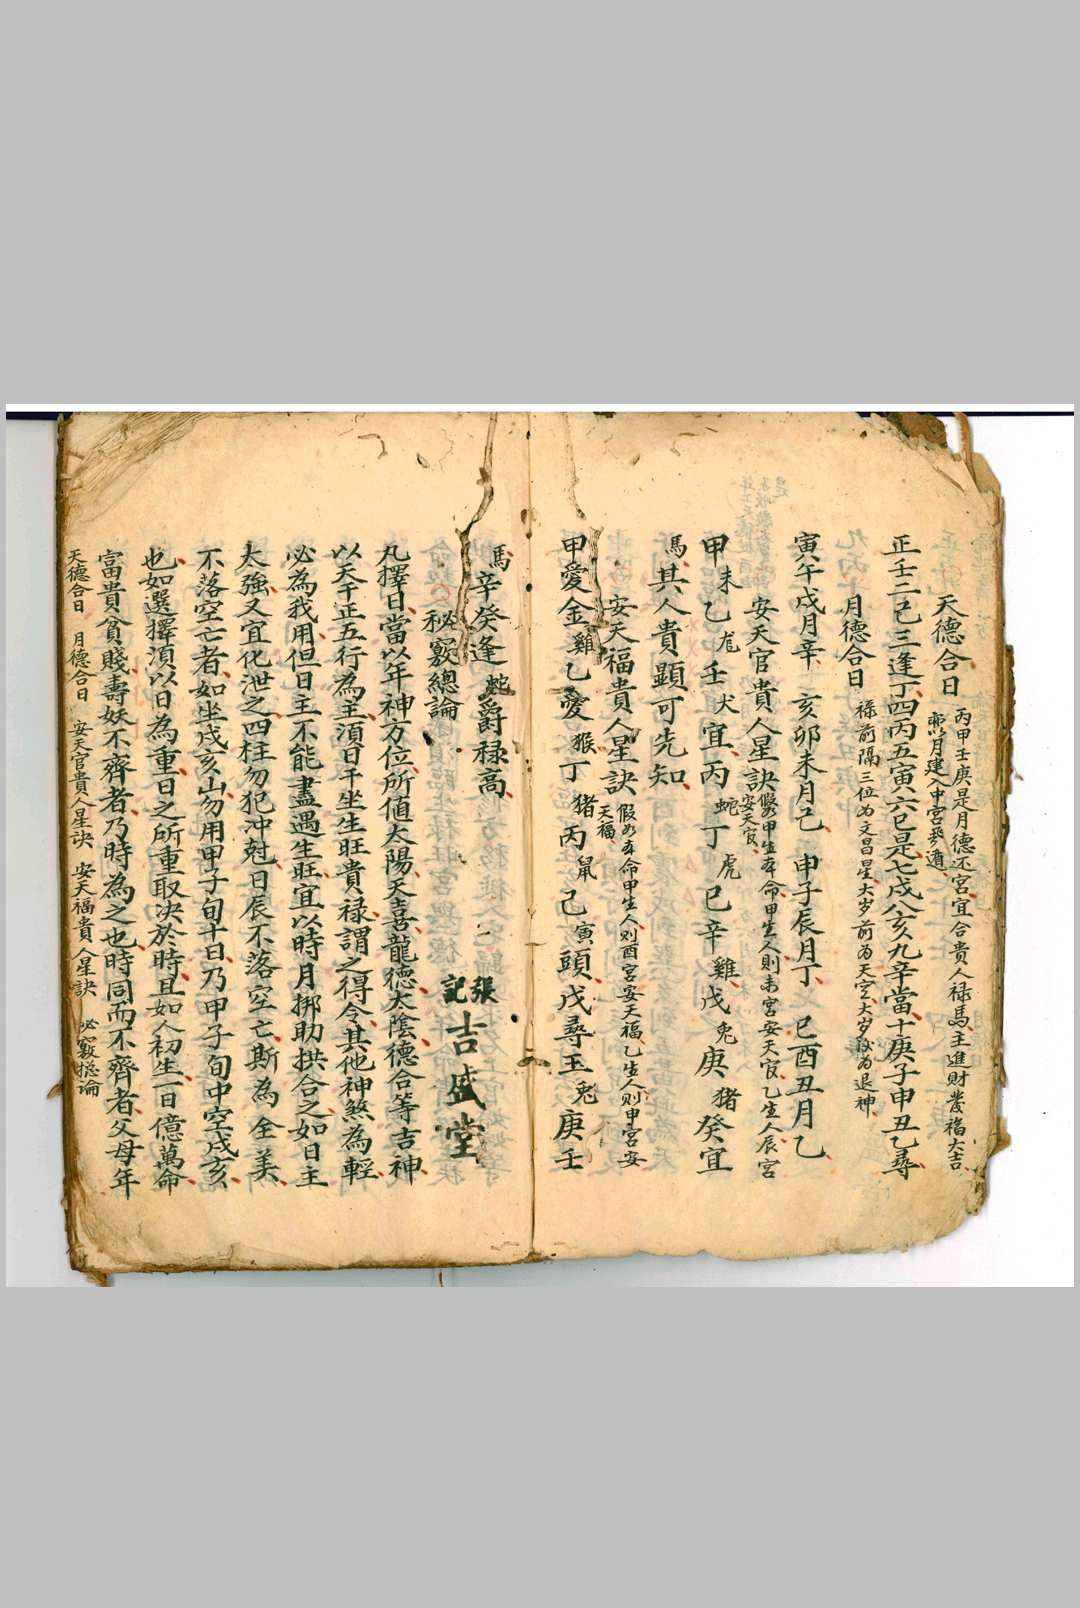 天德合日
丙甲壬庚是月德还宮宜合貴人禄馬主進財發福大吉
月建入中宮
正壬二巳三逢丁四丙五寅六巳是七戌八亥九辛當十庚子申丑乙尋
月德合日
禄前隔三位为文昌星太岁前为天空太岁后为退神
寅午戌月辛 亥卯未月己 申子辰月丁 巳酉丑月乙
安天官貴人星訣
假如甲生本命甲生人則未宮安天官乙生人辰宮
安天官
甲未乙龙壬犬宜丙蛇丁虎巳辛雞戊兔庚猪癸宜
馬其人貴顯可先知
安天福貴人星訣
假如本命甲生人則酉宮安天福乙生人則申宮安
天福
甲愛金雞乙愛猴丁猪丙鼠己寅頭戊尋玉兔庚壬
馬辛癸逢蛇爵禄高
秘竅總論
張記吉盛堂
凡擇日當以年神方位所值太陽天喜龍德太陰德合等吉神
以天干正五行為主湏日干坐生旺貴禄謂之得令其他神煞為輕
必為我用但日主不能盡遇生旺宜以時月挪助拱合之如日主
太強又宜化泄之四柱勿犯冲尅日辰不落空亡斯為全美
不落空亡者如坐戌亥山勿用甲子旬十日乃甲子旬中空戌亥
也如選擇湏以日為重日之所重取决於時且如人初生一日億萬命
富貴貧賤壽妖不齊者乃時為之也時同而不齊者父母年
天德合日 月德合日 安天官貴人星訣 安天福貴人星訣 必竅捴論